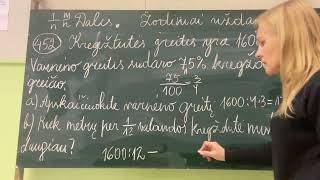 1/n m/n Dalis. Žodiniai uždav
452 Kregždutės greitis yra 1600
Varnėno greitis sudaro 75% kregžd
greičio. 75/100 = 3/4
a) Apskaičiuokite varnėno greitį 1600:4·3=1
b) Kiek metrų per 1/12 valandos kregždutė nuskr
daugiau? 1600:12 –